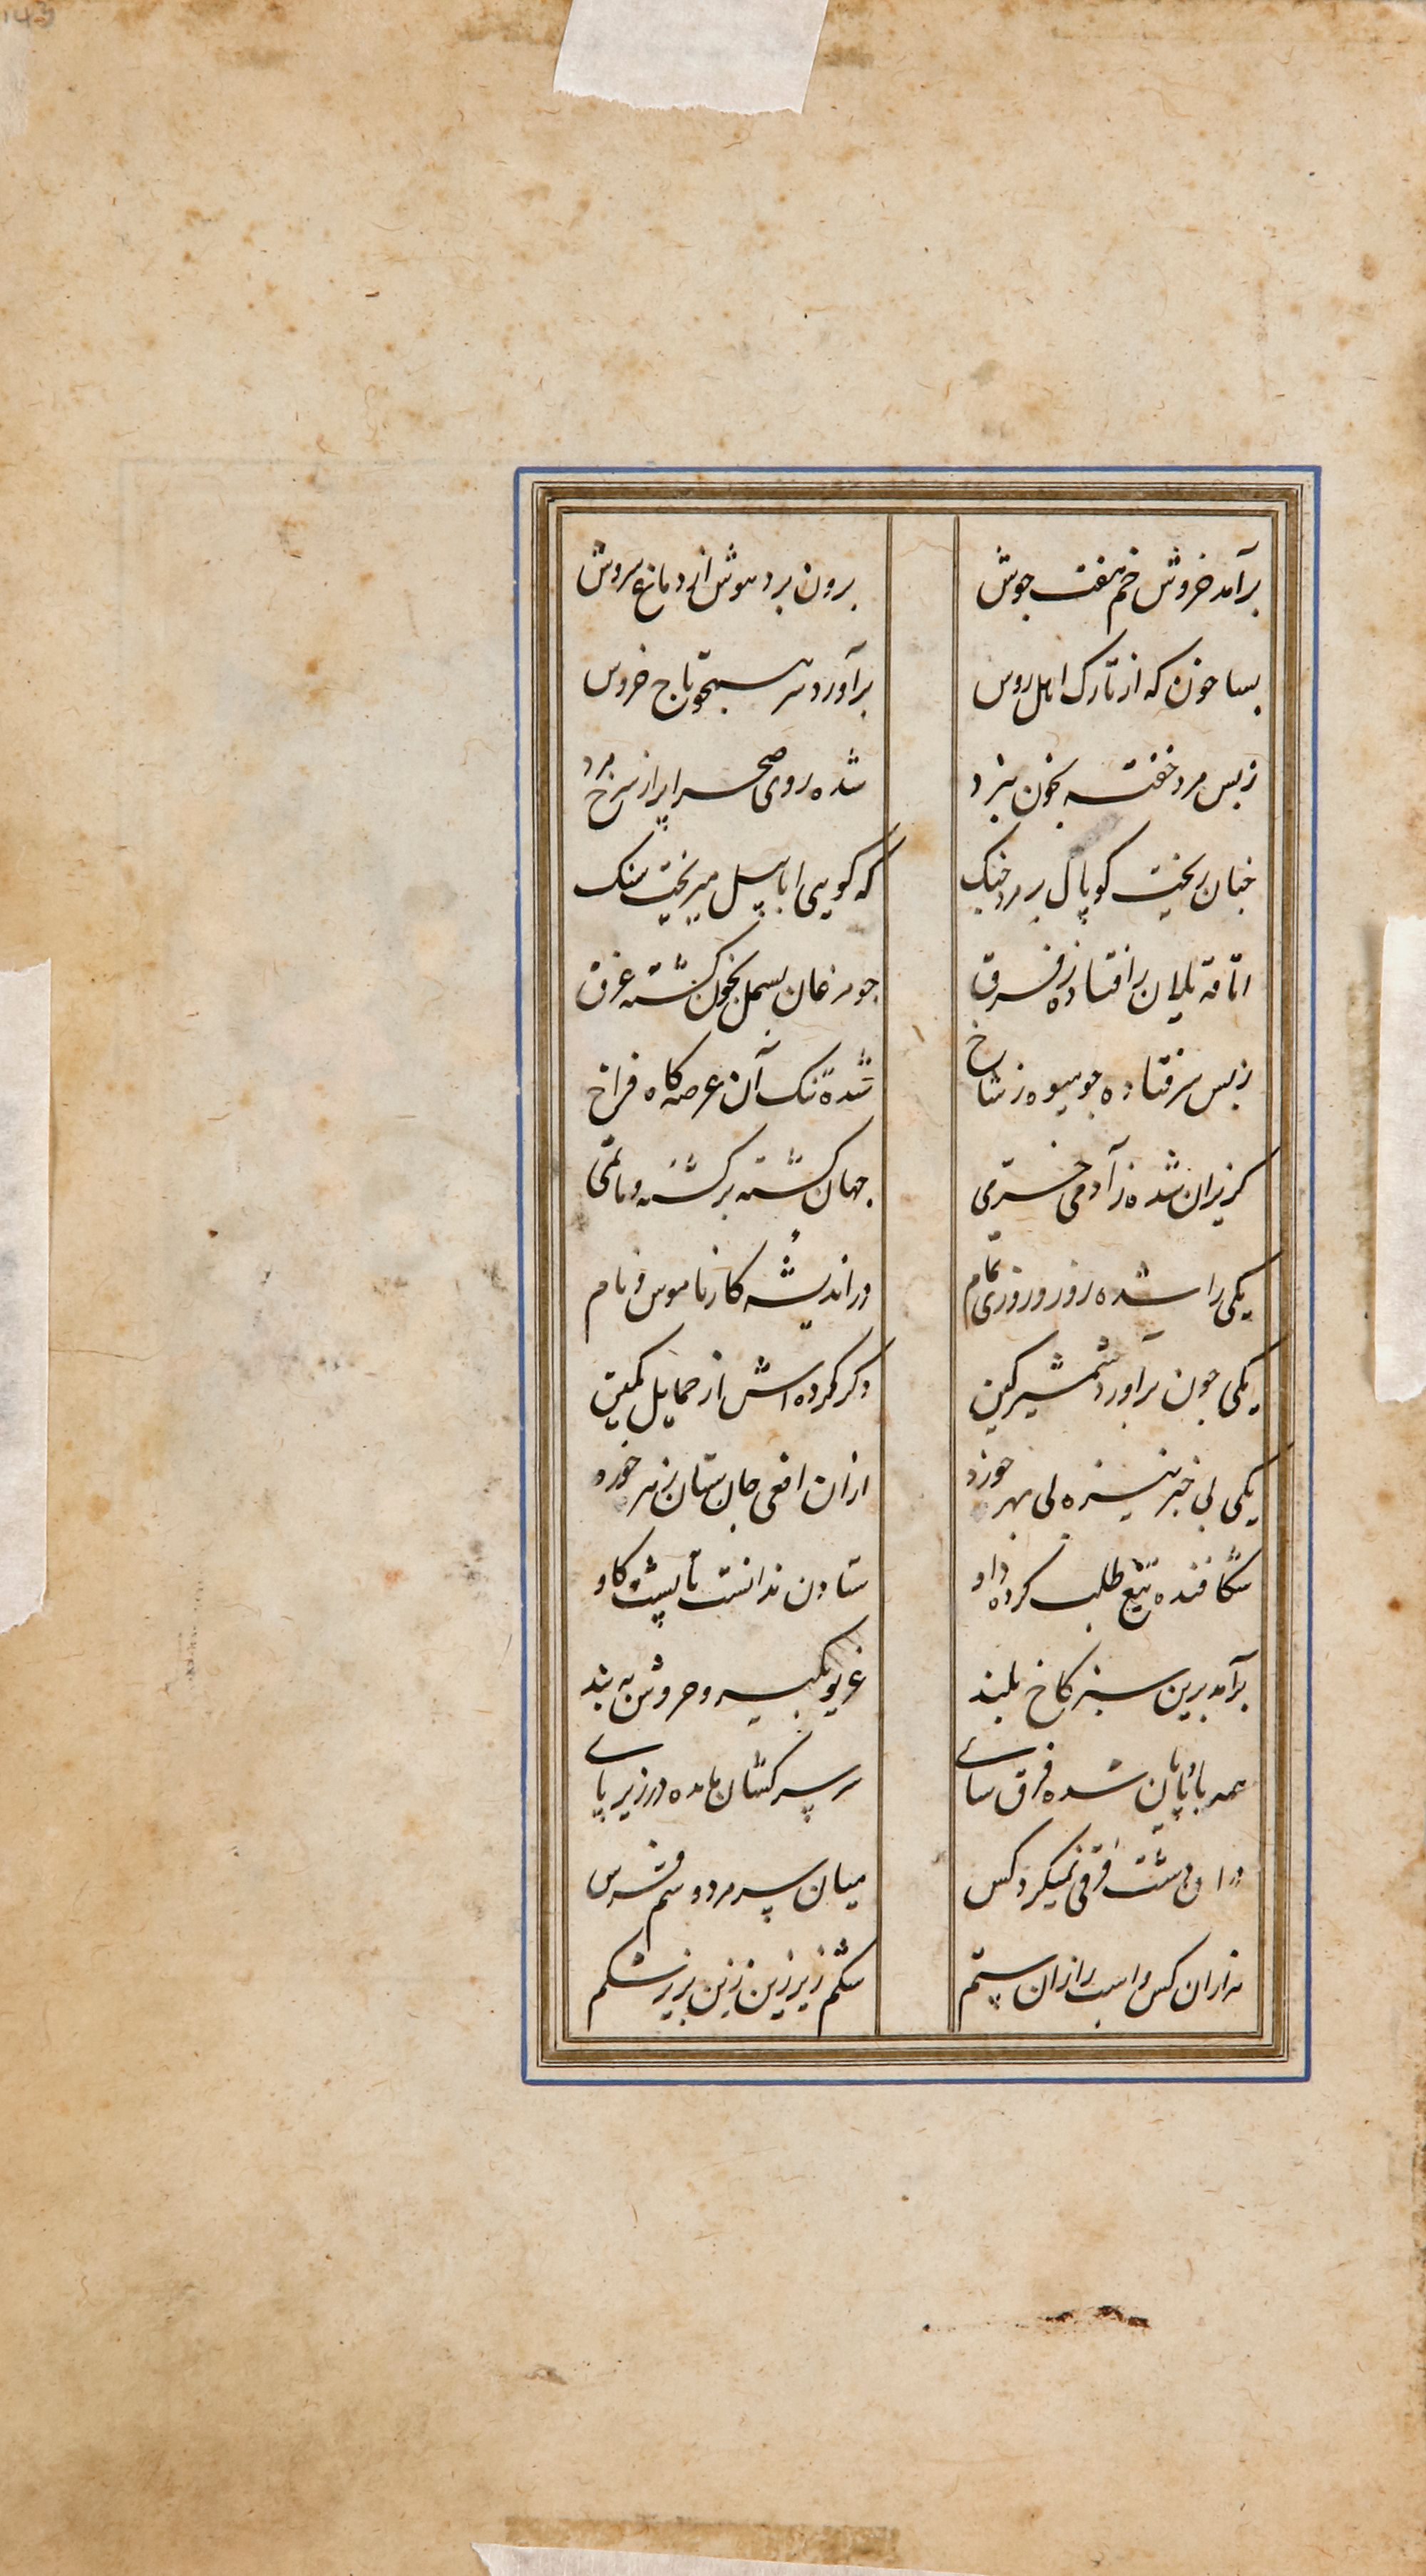 143
برآمد خروش خم هفت جوش برون برد هوش از دماغ سروش
بسا خون که از تارک اهل روس برآورد سر همچو تاج خروس
زبس مرد خفته بخون نبرد شده روی صحرا پر از سرخ مرد
چنان ریخت کوپال بر مرد جنک که کویی ابابیل میریخت سنک
اتاقه یلان را فتاده ز فرق جو مرغان بسمل بخون کشته غرق
زبس سر فتاده جو میوه ز شاخ شده تنک آن عرصه کاه فراخ
کریزان شده ز آدمی خرمی جهان کشته بر کشته و ماتمی
یکی را شده روز و روزی تمام در اندیشه کار ناموس و نام
یکی جون برآورد شمشیر کین دکر کرده اش از حمایل کمین
یکی بی خبر نیزه بی بهر خورد ازان افعی جان ستان زهر خورد
شکافنده تیغ طلب کرده داو ستادن ندانست تا پشت کاو
برآمد برین سبز کاخ بلند غریو بکیر و خروش به بند
همه باد پایان شده فرق سای سر سرکشان مانده در زیر پای
در ان دشت فرقی نمیکرد کس میان سر مرد و سم فرس
نه ازان کس و اسب را زان ستم شکم زیر زین زین بزیر شکم